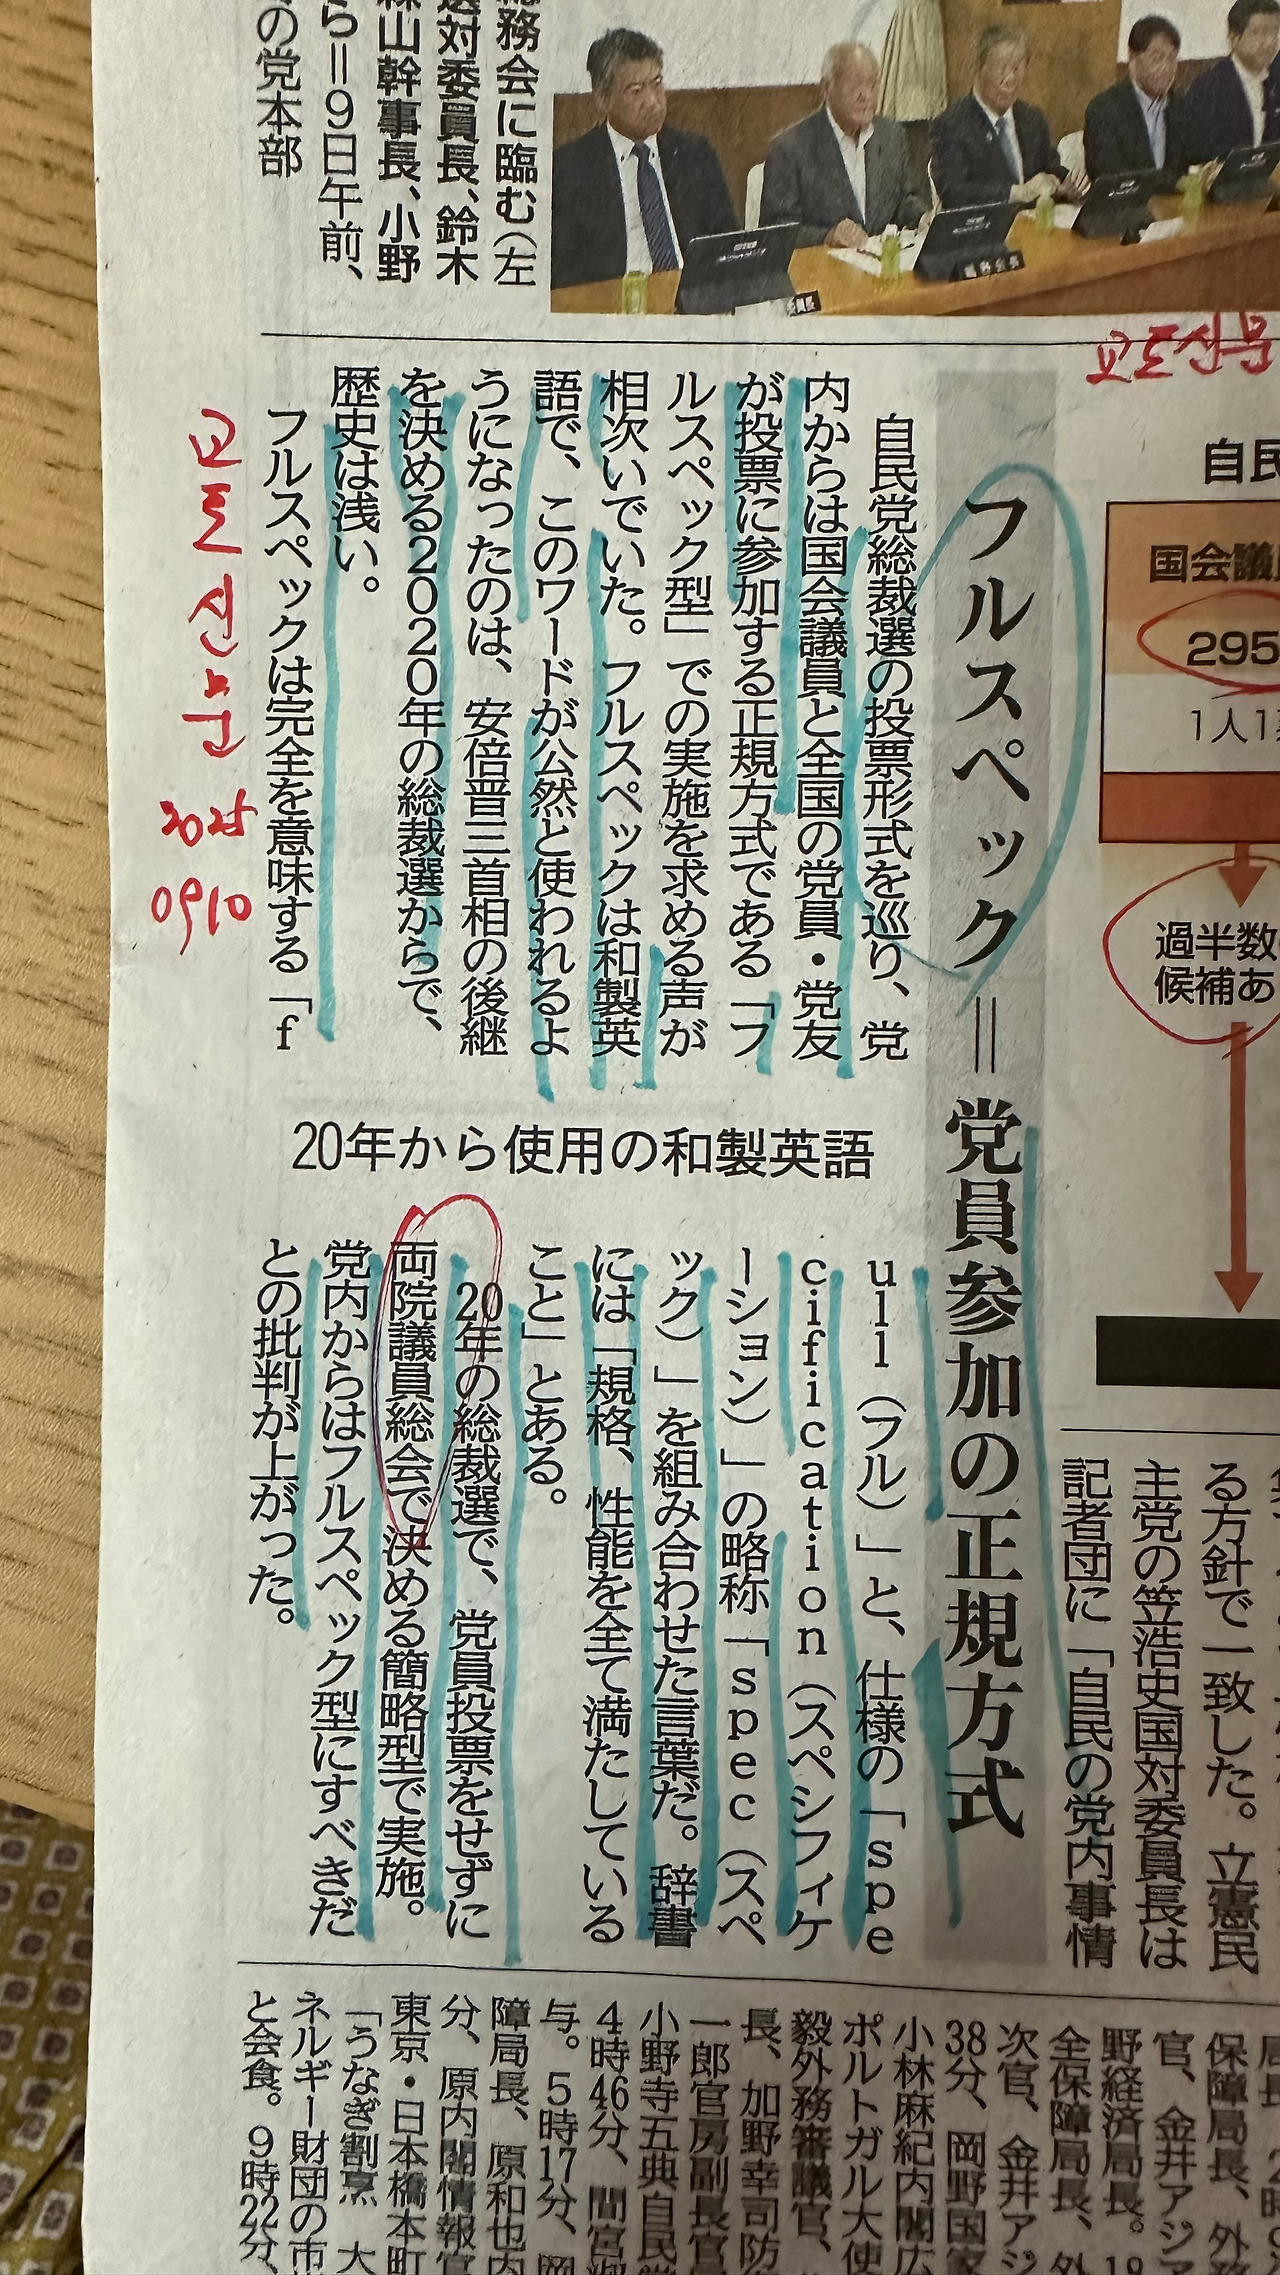 総務会に臨む(左
選対委員長、鈴木
森山幹事長、小野
ら=9日午前、
の党本部
교도신문
自民
国会議
295
1人1
過半数
候補あ
フルスペック=党員参加の正規方式
自民党総裁選の投票形式を巡り、党
内からは国会議員と全国の党員・党友
が投票に参加する正規方式である「フ
ルスペック型」での実施を求める声が
相次いでいた。フルスペックは和製英
語で、このワードが公然と使われるよ
うになったのは、安倍晋三首相の後継
を決める2020年の総裁選からで、
歴史は浅い。
フルスペックは完全を意味する「f
20年から使用の和製英語
ull(フル)」と、仕様の「spe
cification(スペシフィケ
ーション)」の略称「spec(スペ
ック)」を組み合わせた言葉だ。辞書
には「規格、性能を全て満たしている
こと」とある。
20年の総裁選で、党員投票をせずに
両院議員総会で決める簡略型で実施。
党内からはフルスペック型にすべきだ
との批判が上がった。
교도신문
2025
0910
る方針で一致した。立憲民
主党の笠浩史国対委員長は
記者団に「自民の党内事情
保障局長、外務
官、金井アジア
野経済局長。18
全保障局長、外
次官、金井アジ
38分、岡野国家
小林麻紀内閣広
ポルトガル大使
毅外務審議官、
長、加野幸司防
一郎官房副長官
小野寺五典自民
4時46分、間宮淑
与。5時17分、岡
障局長、原和也内
分、原内閣情報官
東京・日本橋本町
「うなぎ割烹 大
ネルギー財団の市
と会食。9時22分、